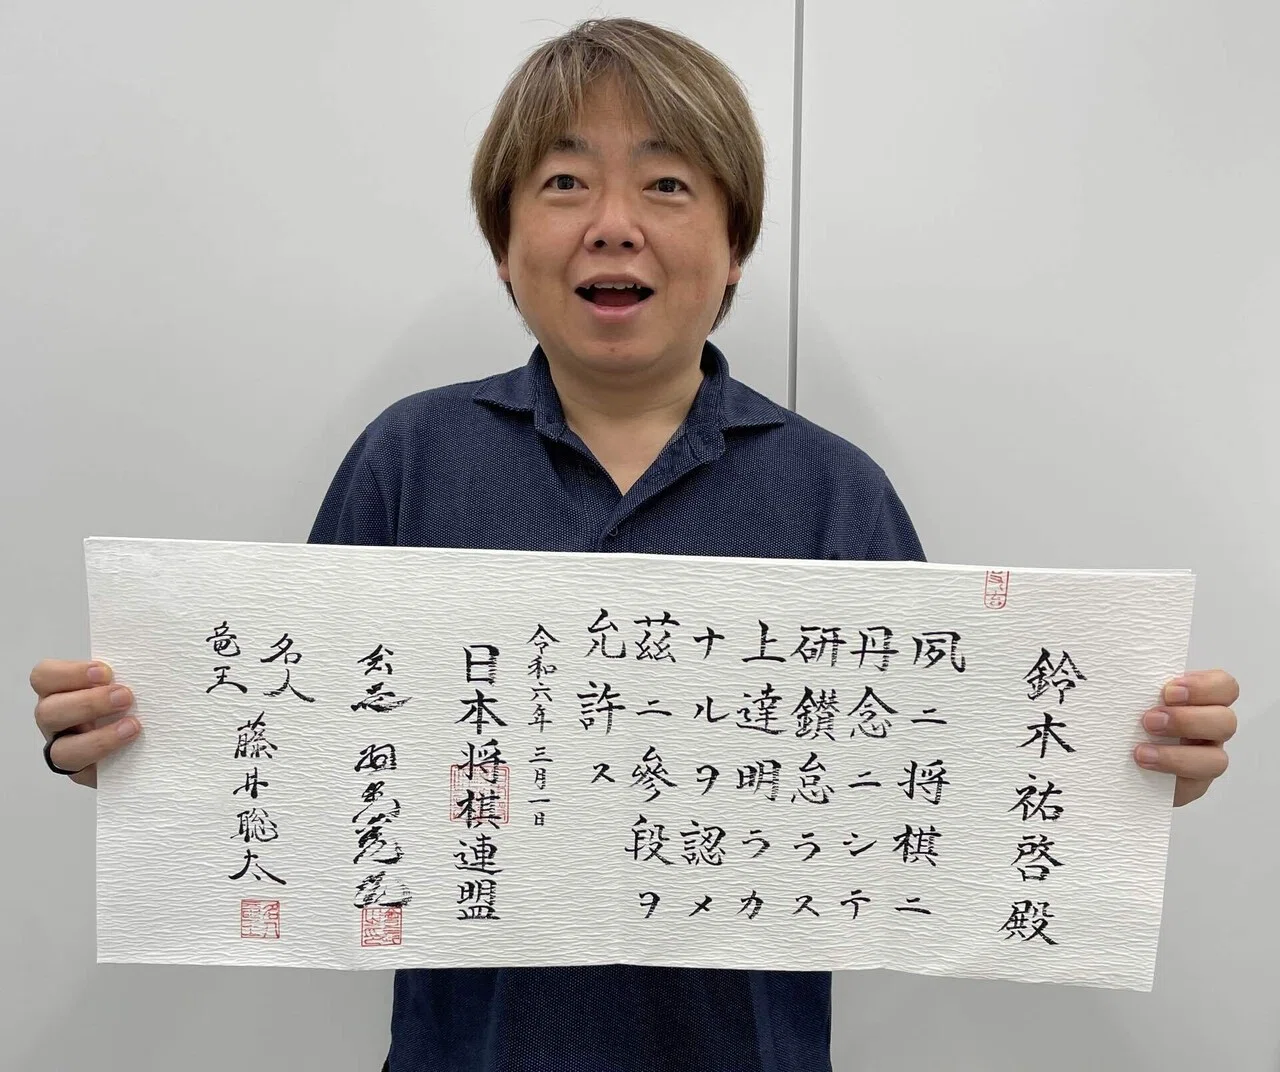 鈴木祐啓殿
夙ニ将棋ニ
丹念ニシテ
研鑽怠ラス
上達明ラカ
ナルヲ認メ
茲ニ參段ヲ
允許ス
令和六年三月一日
日本将棋連盟
会長
名人
竜王
藤井聡太